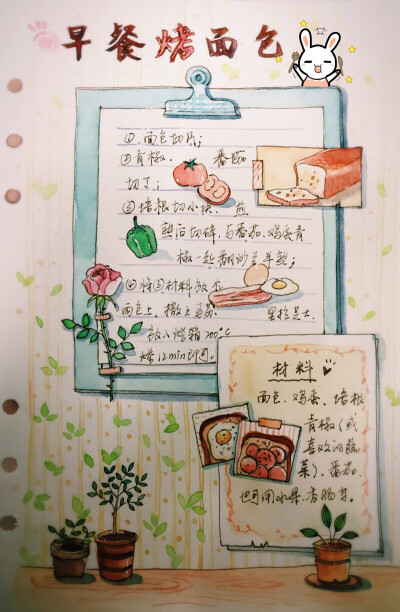 早餐烤面包
① 面包切片；
② 青椒、番茄
切丁；
③ 培根切小块，煎
熟后切碎，与番茄、鸡蛋青
椒一起翻炒至半熟；
④ 将③材料放在
面包上，撒上马苏里拉芝士，
放入烤箱200℃
烤12min即可。
材料
面包、鸡蛋、培根
青椒（或
喜欢的蔬
菜）、番茄、
也可用水果、香肠等。